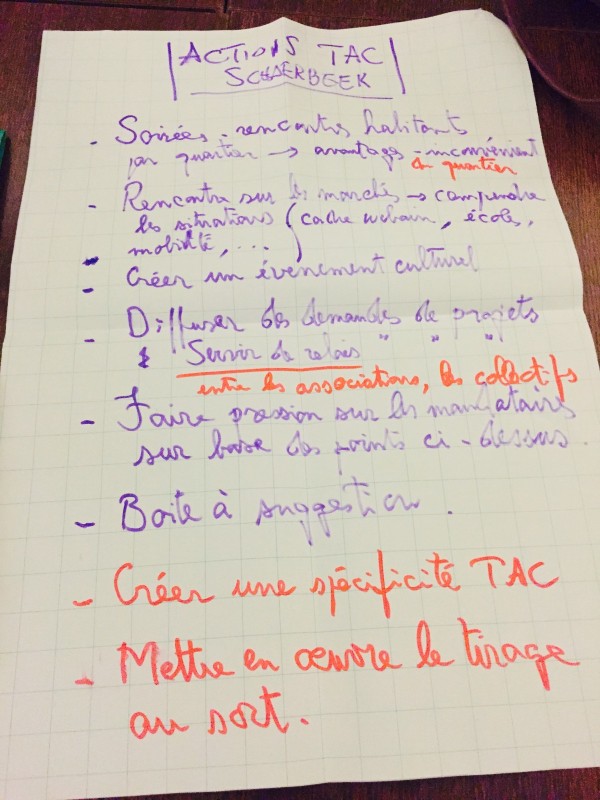 ACTIONS TAC
SCHAERBEEK
- Soirées-rencontres habitants
par quartier → avantages-inconvénient
du quartier
- Rencontre sur les marchés → comprendre
les situations (cadre urbain, écoles,
mobilité, ...)
- Créer un événement culturel
- Diffuser des demandes de projets
& Servir de relais " " "
entre les associations, les collectifs
- Faire pression sur les mandataires
sur base des points ci-dessus.
- Boite à suggestion.
- Créer une spécificité TAC
- Mettre en œuvre le tirage
au sort.